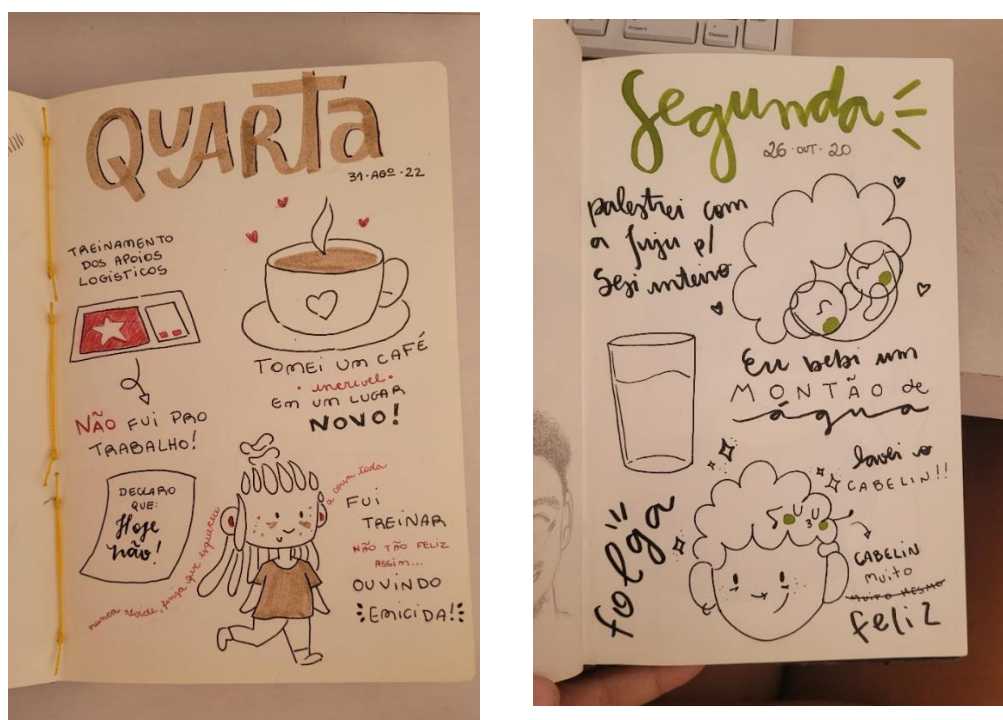 QUARTA
31·AGO·22
TREINAMENTO
DOS APOIOS
LOGISTICOS
NÃO FUI PRO
TRABALHO!
TOMEI UM CAFÉ
· incrível ·
EM UM LUGAR
NOVO!
DECLARO
QUE:
Hoje
não!
FUI
TREINAR
NÃO TÃO FELIZ
ASSIM...
OUVINDO
EMICIDA!!
a coisa toda
Segunda
26·OUT·20
palestrei com
a Juju p/
Sesi inteiro
Eu bebi um
MONTÃO de
água
folga
lavei o
CABELIN!!
CABELIN
MUITO
MUITO MESMO
feliz